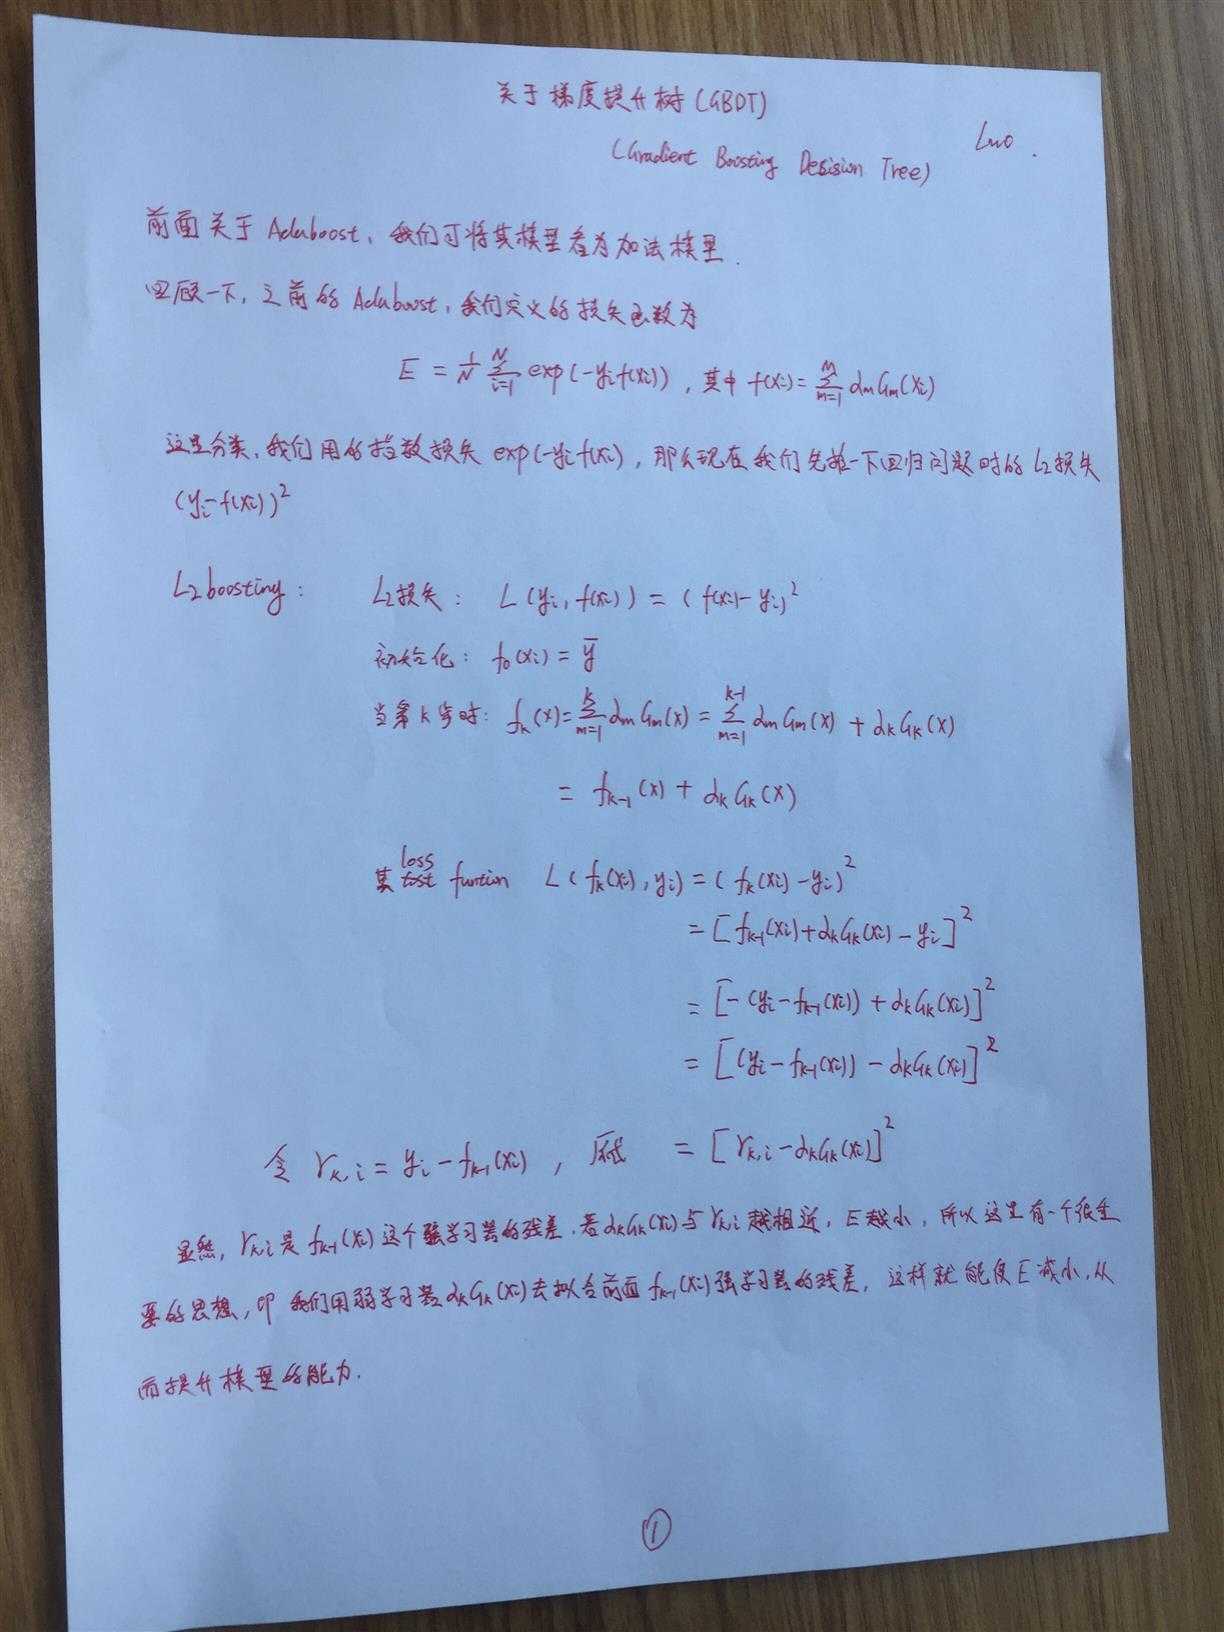 关于梯度提升树(GBDT)
(Gradient Boosting Decision Tree)
Luo.
前面关于 Adaboost, 我们可将其模型看为加法模型.
回顾一下, 之前的 Adaboost, 我们定义的损失函数为
E = 1/N ∑_{i=1}^{N} exp(-y_i f(x_i)), 其中 f(x_i) = ∑_{m=1}^{M} α_m G_m(x_i)
这里分类, 我们用的指数损失 exp(-y_i f(x_i), 那么现在我们先推一下回归问题时的 L2损失
(y_i - f(x_i))^2
L2boosting: L2损失: L(y_i, f(x_i)) = (f(x_i) - y_i)^2
初始化: f_0(x_i) = ȳ
当第k步时: f_k(x) = ∑_{m=1}^{k} α_m G_m(x) = ∑_{m=1}^{k-1} α_m G_m(x) + α_k G_k(x)
= f_{k-1}(x) + α_k G_k(x)
其 loss funtion L(f_k(x_i), y_i) = (f_k(x_i) - y_i)^2
= [f_{k-1}(x_i) + α_k G_k(x_i) - y_i]^2
= [-(y_i - f_{k-1}(x_i)) + α_k G_k(x_i)]^2
= [(y_i - f_{k-1}(x_i)) - α_k G_k(x_i)]^2
令 r_{k,i} = y_i - f_{k-1}(x_i), 原式 = [r_{k,i} - α_k G_k(x_i)]^2
显然, r_{k,i} 是 f_{k-1}(x_i) 这个强学习器的残差. 若 α_k G_k(x_i) 与 r_{k,i} 越相近, E越小, 所以这里有一个很重
要的思想, 即 我们用弱学习器 α_k G_k(x_i) 去拟合前面 f_{k-1}(x_i) 强学习器的残差, 这样就能使E减小, 从
而提升模型的能力.
①